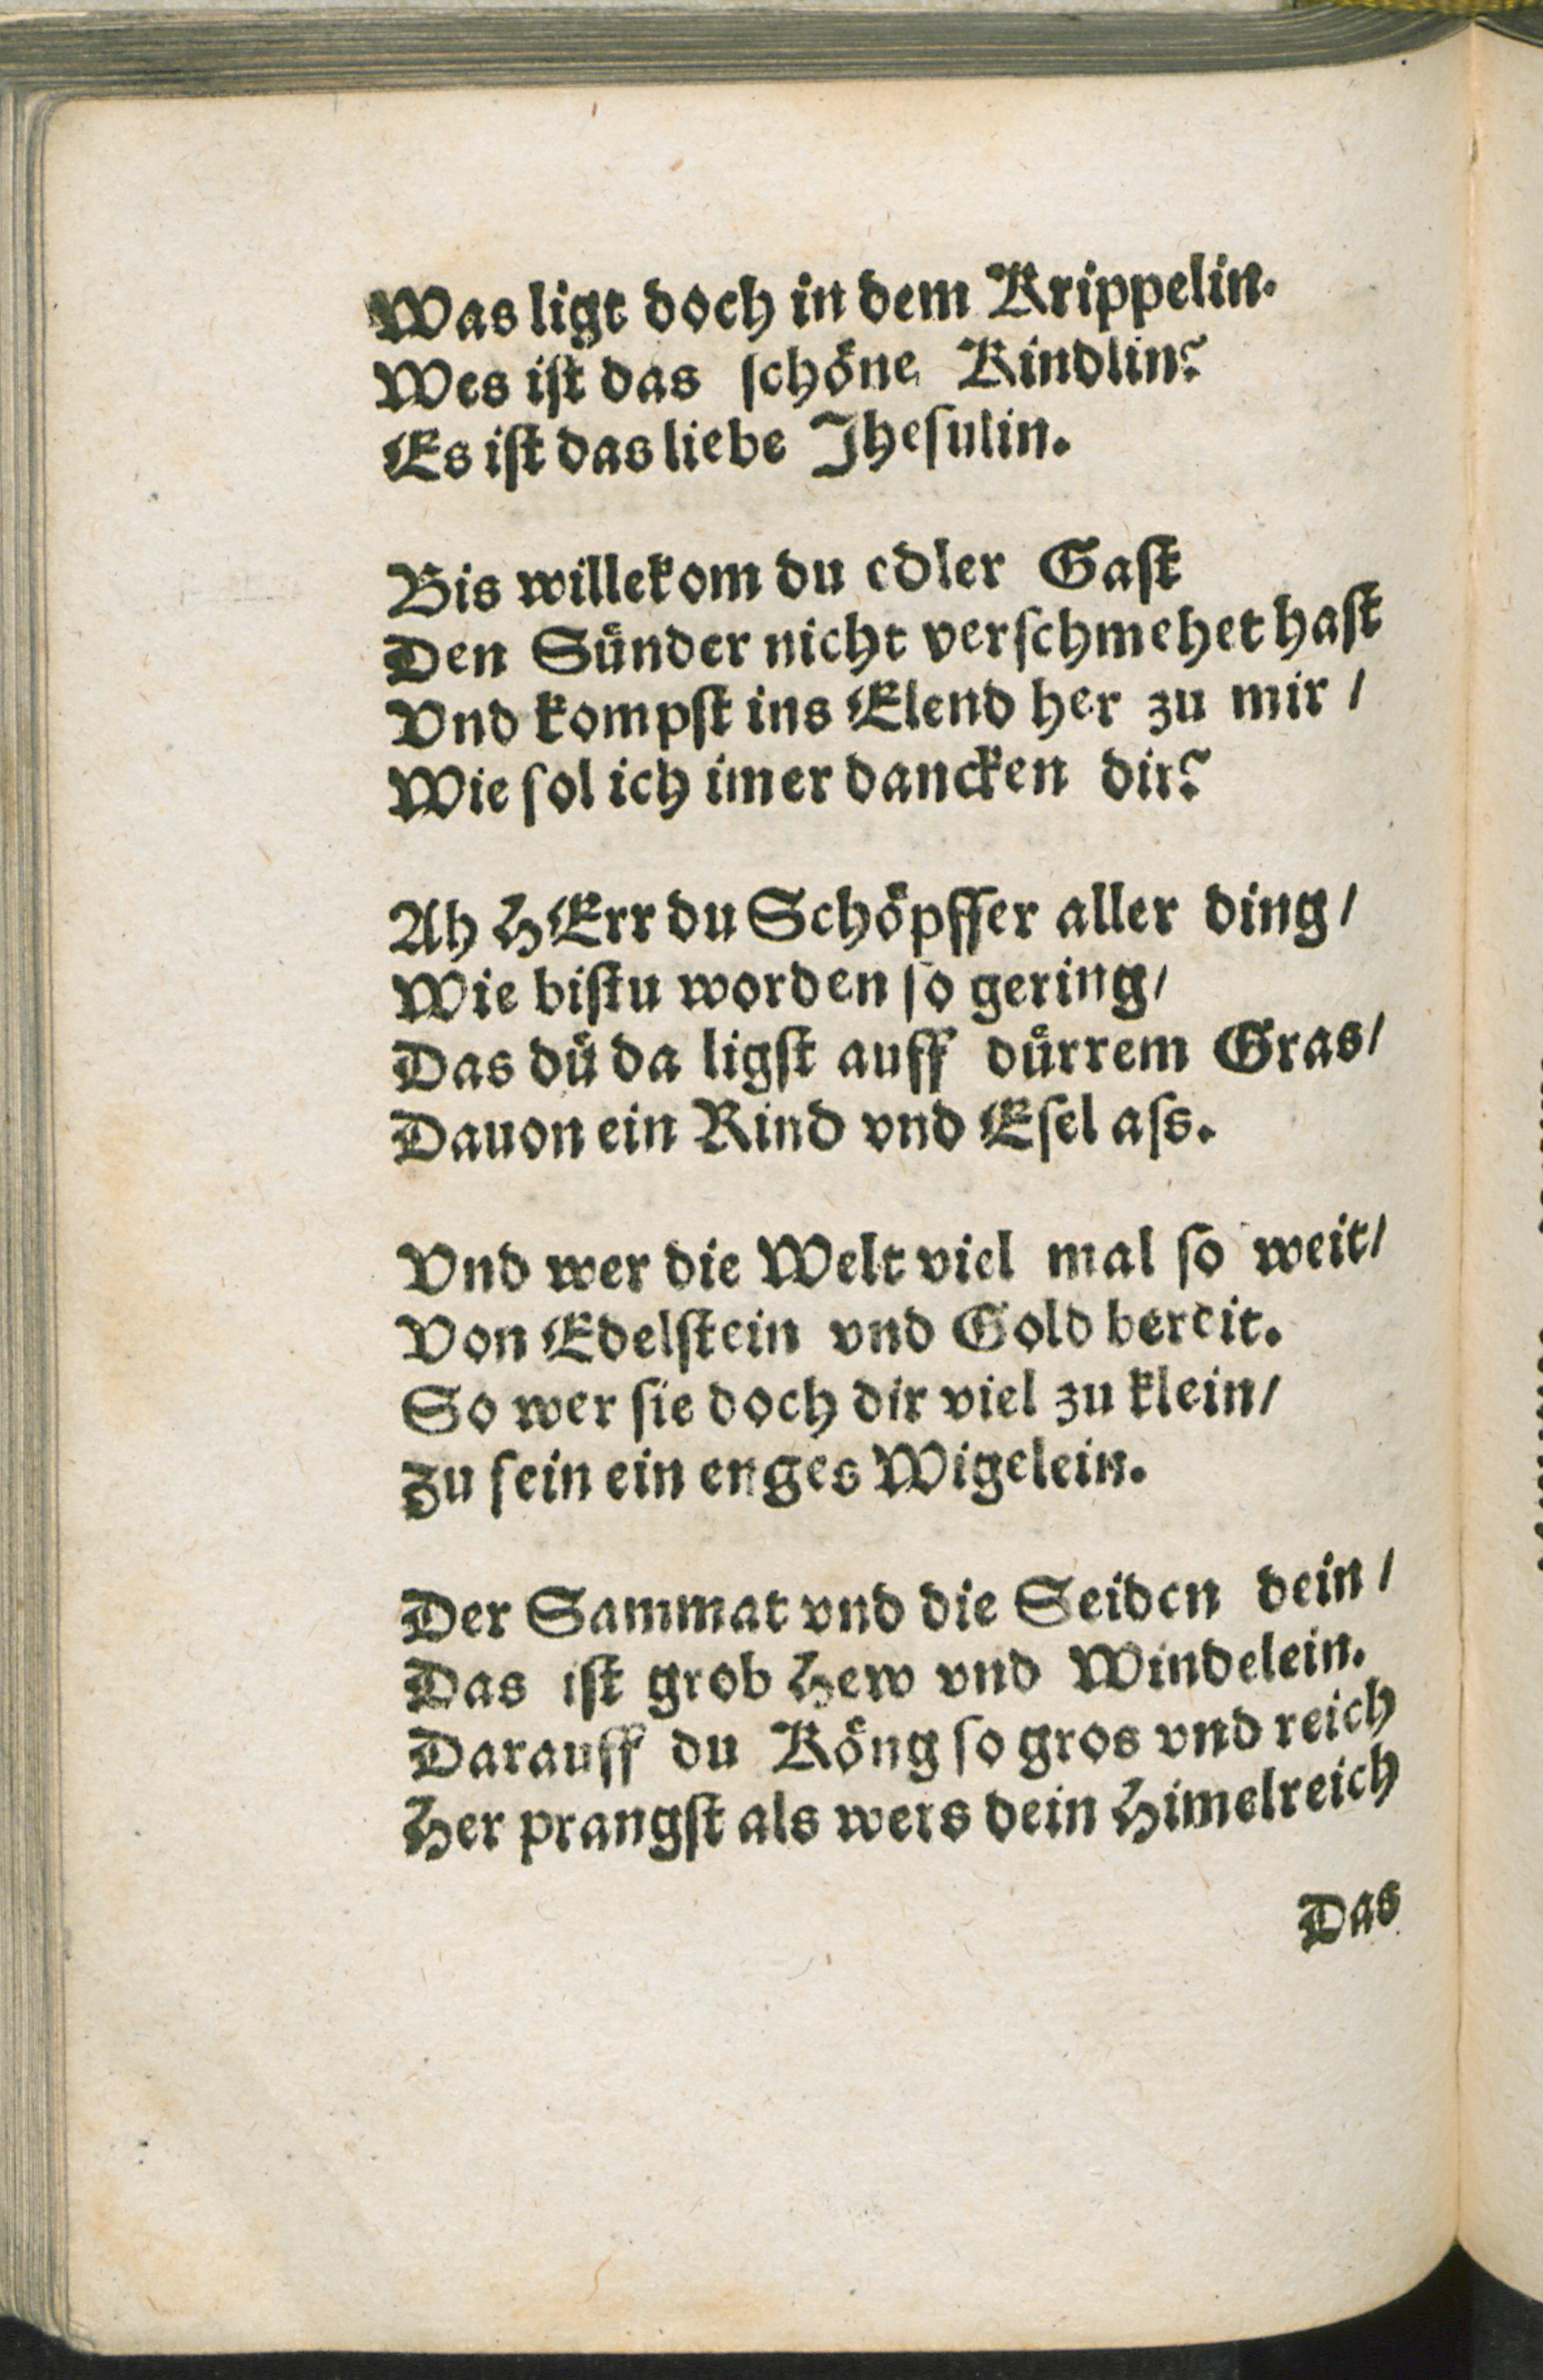 Was ligt doch in dem Krippelin.
Wes iſt das ſchöne Kindlin?
Es iſt das liebe Jheſulin.
Bis willekom du edler Gaſt
Den Sünder nicht verſchmehet haſt
Vnd kompſt ins Elend her zu mir /
Wie ſol ich imer dancken dir?
Ah HErr du Schöpffer aller ding /
Wie biſtu worden ſo gering /
Das dů da ligſt auff důrrem Gras /
Dauon ein Rind vnd Eſel aſs.
Vnd wer die Welt viel mal ſo weit /
Von Edelſtein vnd Gold bereit.
So wer ſie doch dir viel zu klein /
Zu ſein ein enges Wigelein.
Der Sammat vnd die Seiden dein /
Das iſt grob Hew vnd Windelein.
Darauff du Köng ſo gros vnd reich
Her prangſt als wers dein Himelreich
Das